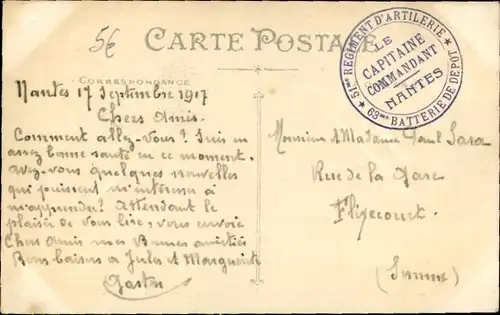 5€
CARTE POSTALE
51me REGIMENT D'ARTILERIE
LE
CAPITAINE
COMMANDANT
NANTES
63me BATTERIE DE DEPOT
CORRESPONDANCE
Nantes 17 Septembre 1917
Chers Amis.
Comment allez-vous? Suis en
assez bonne santé en ce moment.
Avez-vous quelques nouvelles
qui puissent m'intéresser à
m'apprendre? Attendant le
plaisir de vous lire, vous envoie
Chers Amis mes Bonnes amitiés
Bons baisers à Jules et Marguerite
Gaston
Monsieur & Madame Paul
Rue de la Gare
Flixecourt.
(Somme)